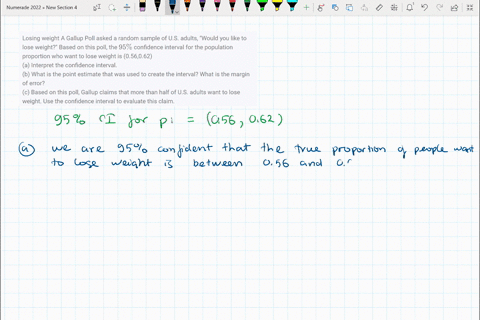 Numerade 2022 » New Section 4
Losing weight A Gallup Poll asked a random sample of U.S. adults, "Would you like to
lose weight?" Based on this poll, the 95% confidence interval for the population
proportion who want to lose weight is (0.56,0.62)
(a) Interpret the confidence interval.
(b) What is the point estimate that was used to create the interval? What is the margin
of error?
(c) Based on this poll, Gallup claims that more than half of U.S. adults want to lose
weight. Use the confidence interval to evaluate this claim.
95% CI for p : = (0.56, 0.62)
(a) we are 95% confident that the true proportion of people want
to lose weight is between 0.56 and 0.